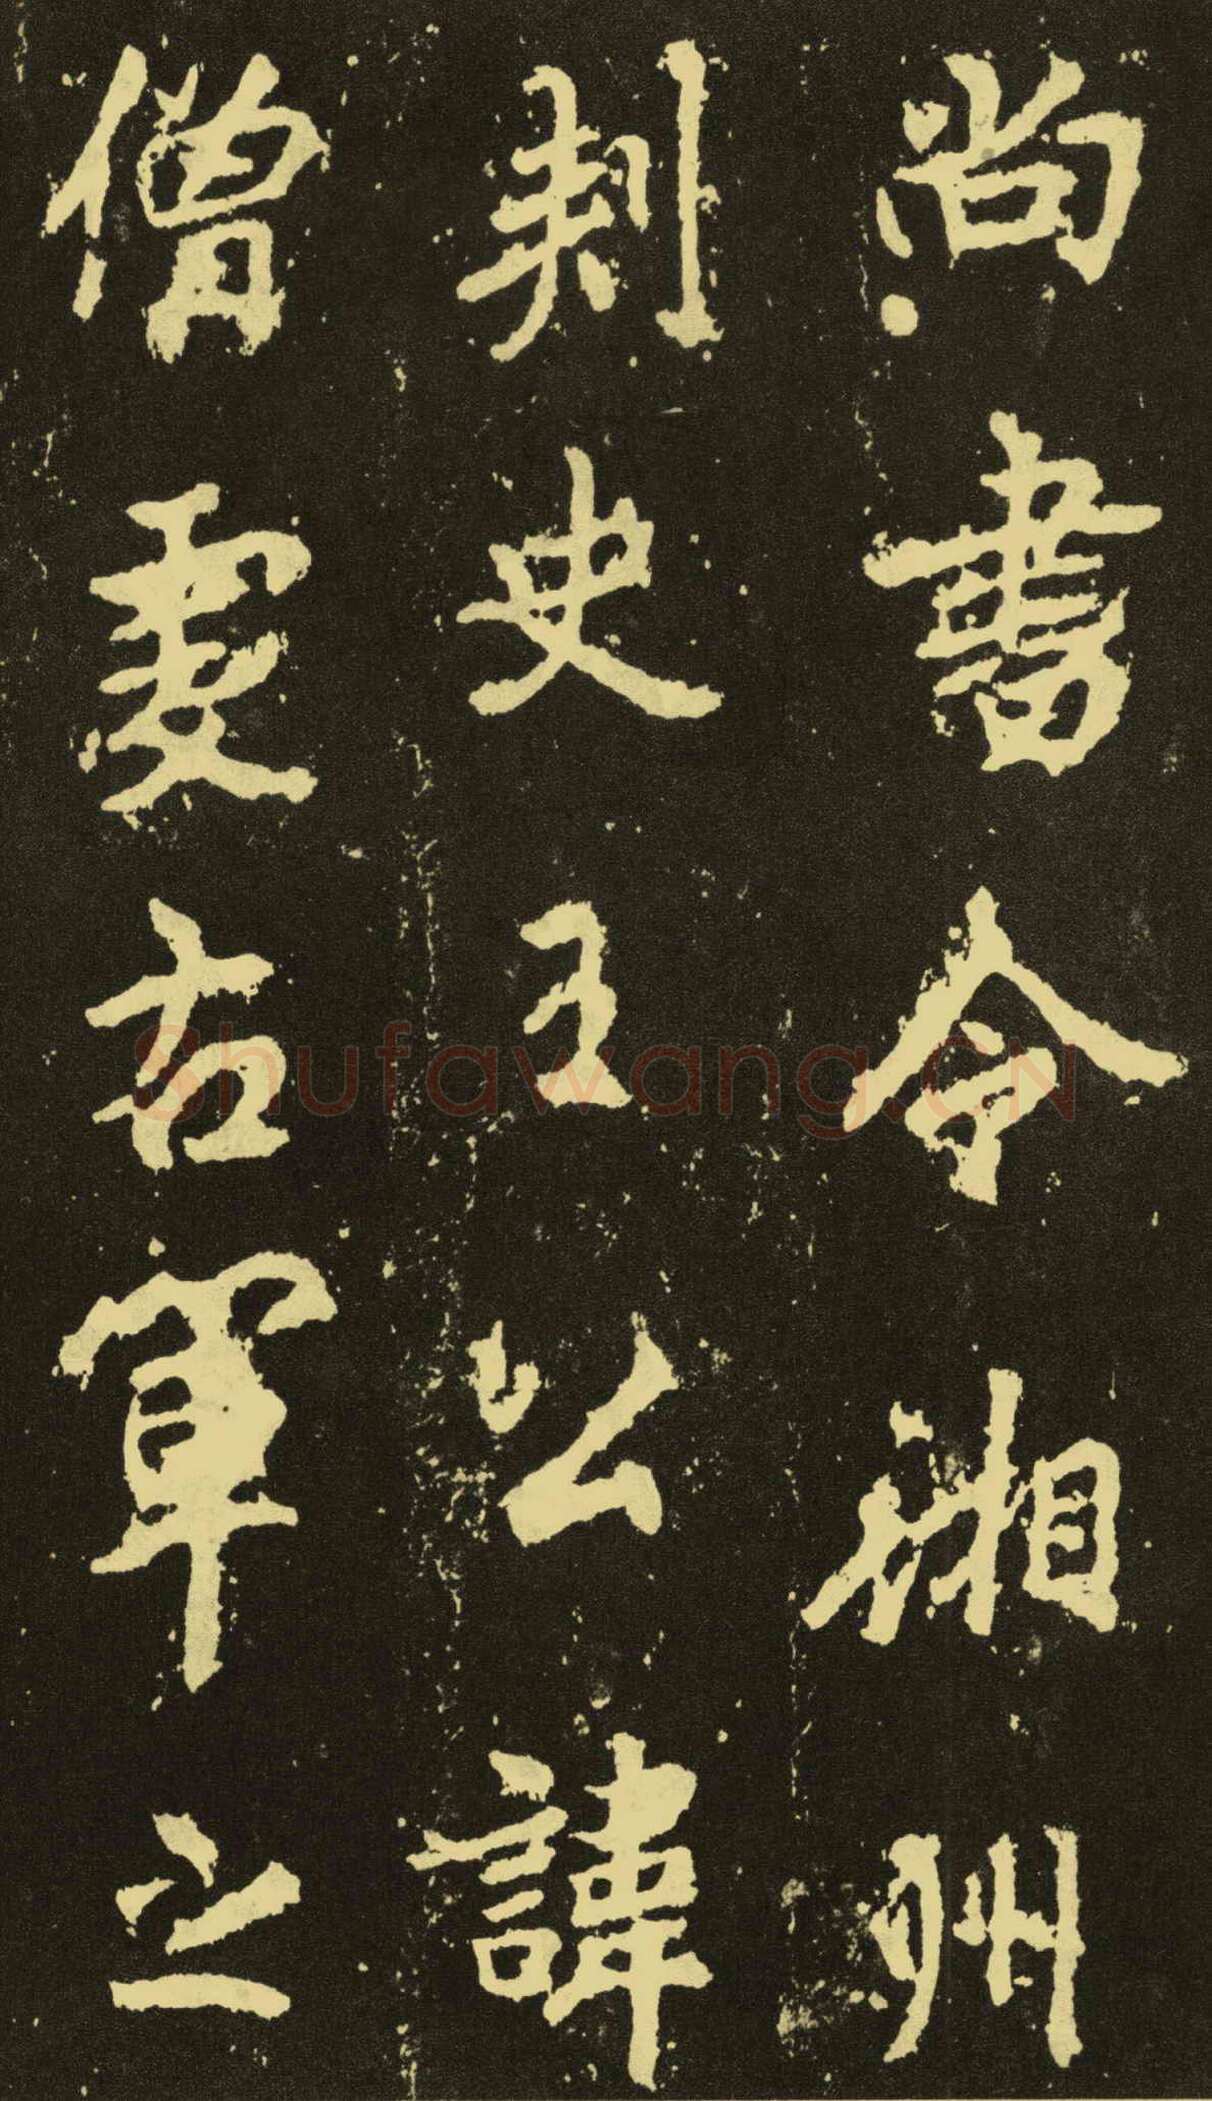 尚書令湘州
刺史王公諱
僧虔右軍之
Shufawang.CN